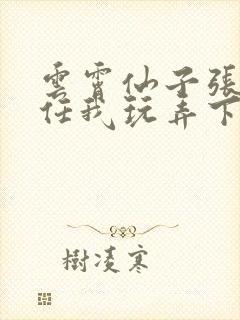 雲霄仙子張
任我玩弄下
樹凌寒